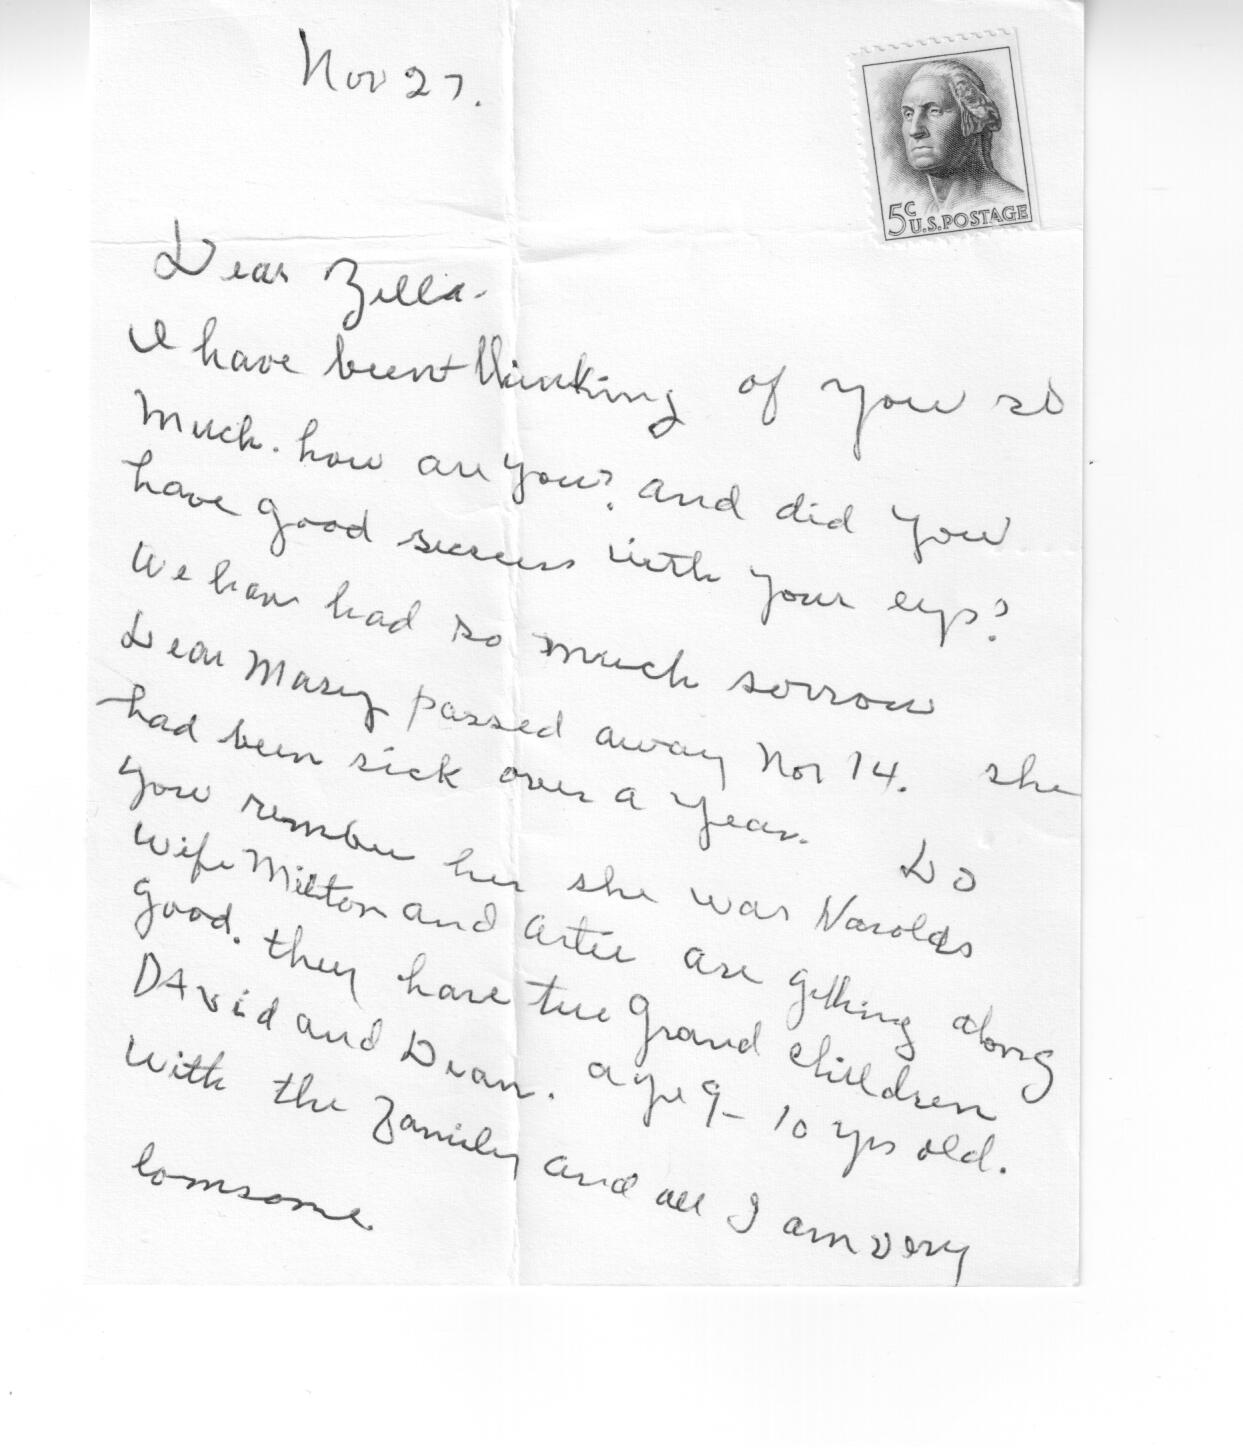 Nov 27.
5c
U.S. POSTAGE
Dear Zella.
I have been thinking of you so
Much. how are you? and did you
have good success with your eyes?
We have had so much sorrow
Dear Mary passed away Nov 14. she
had been sick over a year. Do
you rember her she was Harolds
wife Milton and Artie are getting along
good. they have two Grand children
DAvid and Dean. age 9 - 10 yrs old.
with the family and all I am very
lomsome.